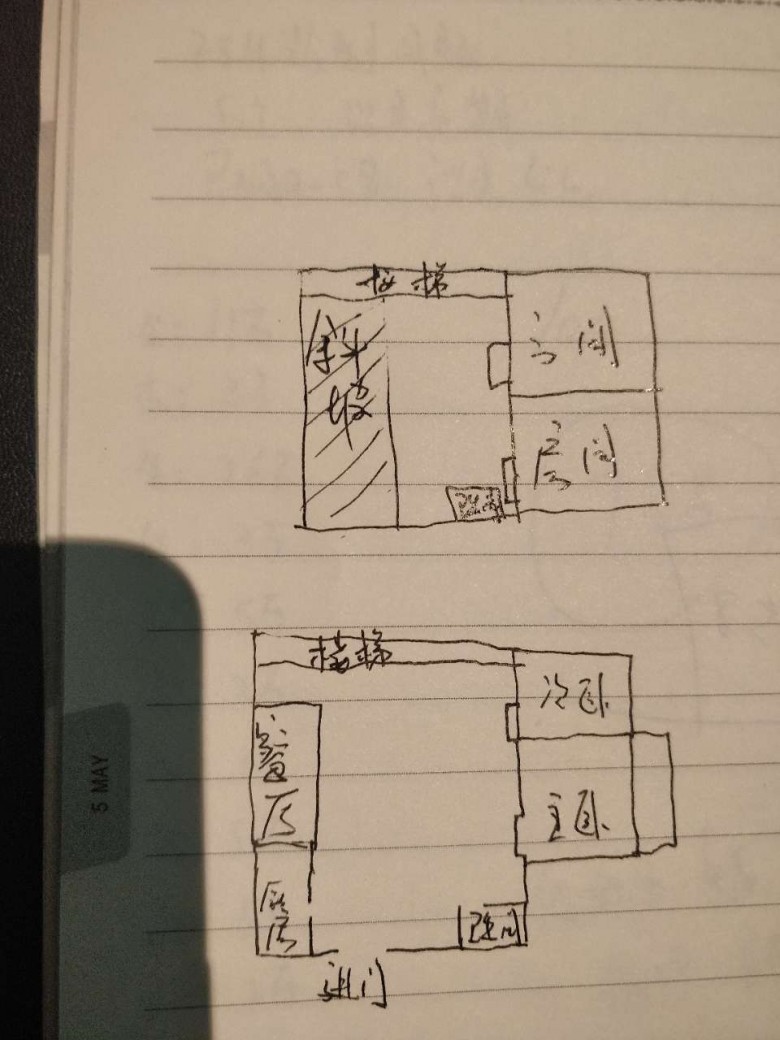 楼梯
斜
坡
房间
房间
楼梯
次卧
餐
厅
主卧
厨
房
卫生间
进门
5 MAY